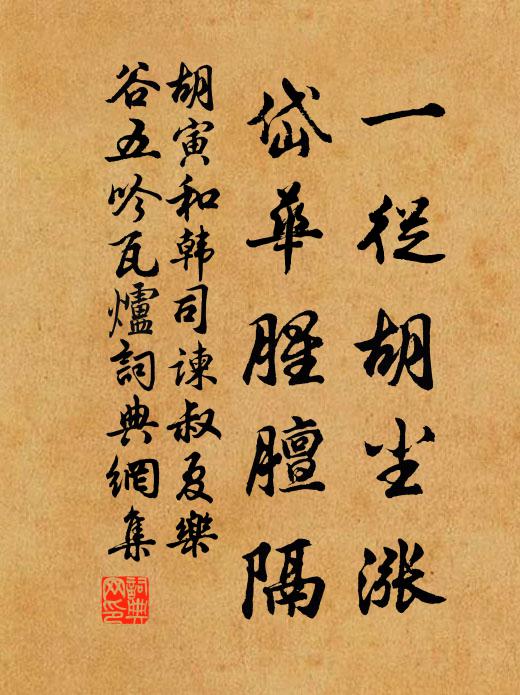 一從胡尘漲
岱華腥膻隔
胡寅和韩司諫叔夏樂
谷五吟瓦爐詞典網集
詞典网印